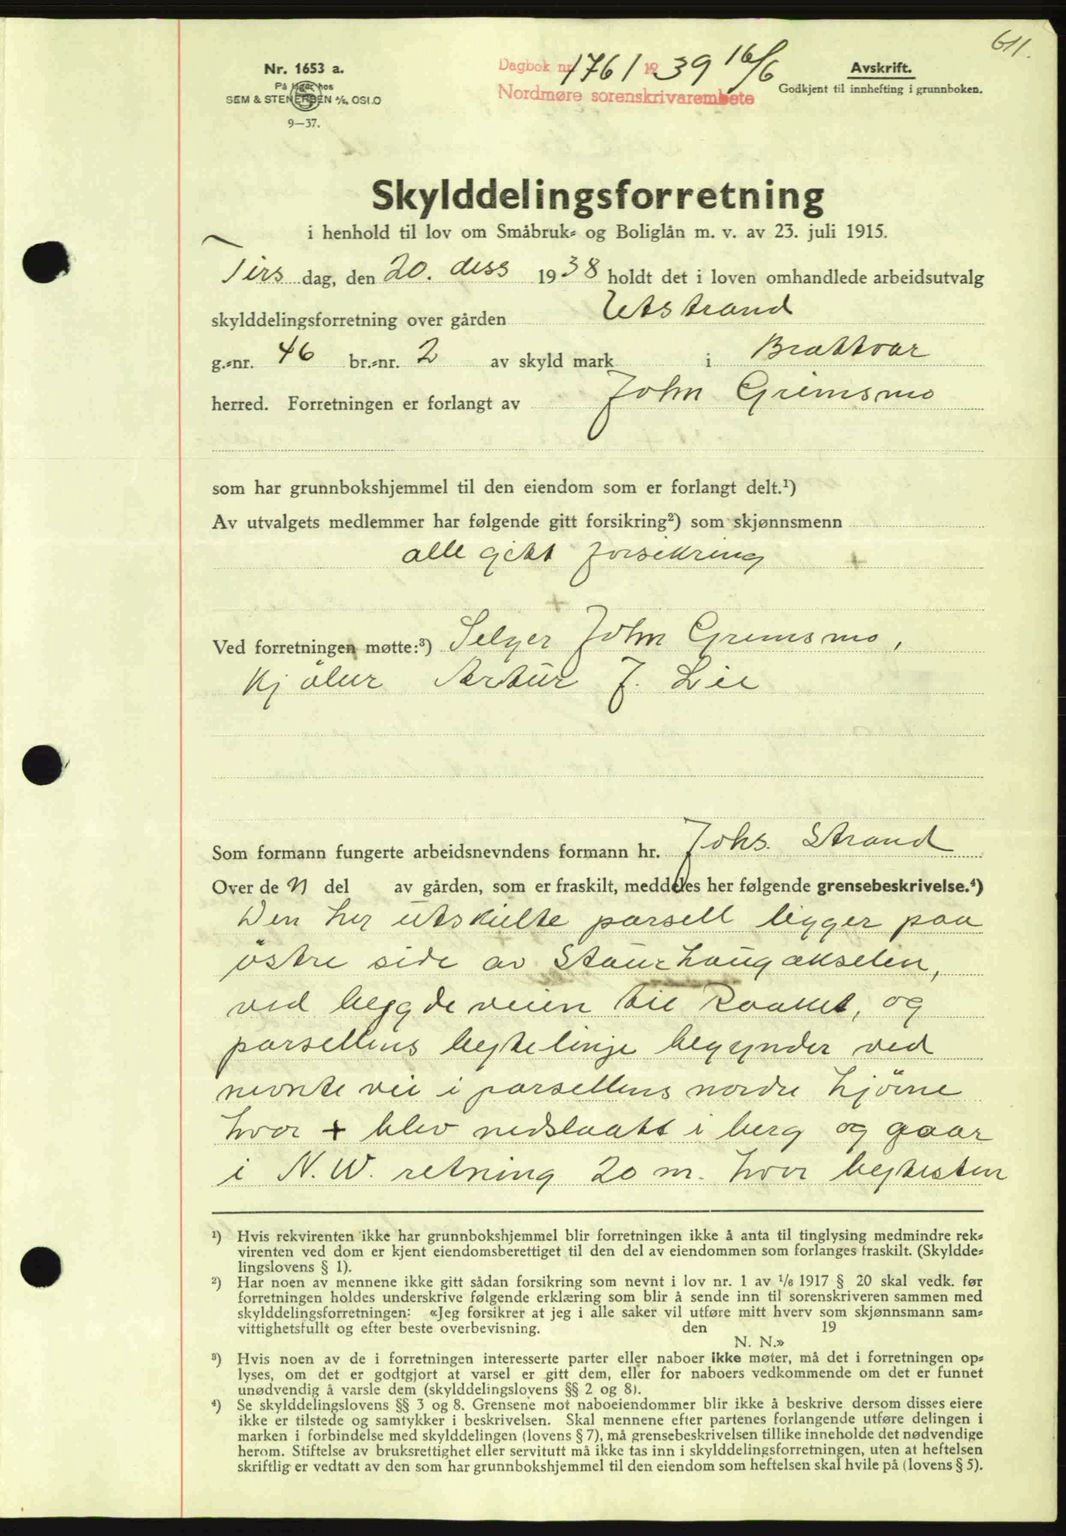 611.
Nr. 1653 a.
På lager hos
SEM & STENERSEN A/S, OSLO
9—37.
Dagbok nr. 1761 1939 16/6
Nordmøre sorenskrivarembete
Avskrift.
Godkjent til innhefting i grunnboken.
Skylddelingsforretning
i henhold til lov om Småbruk- og Boliglån m. v. av 23. juli 1915.
Tirs dag, den 20. dess 1938 holdt det i loven omhandlede arbeidsutvalg
skylddelingsforretning over gården Utstrand
g.-nr. 46 br.-nr. 2 av skyld mark i Brattvær
herred. Forretningen er forlangt av John Grimsmo
som har grunnbokshjemmel til den eiendom som er forlangt delt.¹)
Av utvalgets medlemmer har følgende gitt forsikring²) som skjønnsmenn
alle gitt forsikring
Ved forretningen møtte:³) Selger John Grimsmo,
Kjöbur Artur J. Lie
Som formann fungerte arbeidsnevndens formann hr. Johs. Strand
Over de n del av gården, som er fraskilt, meddeles her følgende grensebeskrivelse.⁴)
Den her utskilte parsell ligger paa
östre side av Staurhaugakselen,
ved bygdeveien til Raaket, og
parsellens bytelinje begynder ved
nevnte vei i parsellens nordre hjörne
hvor + blev nedslaatt i berg og gaar
i N.W. retning 20 m. hvor bytesten
¹) Hvis rekvirenten ikke har grunnbokshjemmel blir forretningen ikke å anta til tinglysing medmindre rek-
virenten ved dom er kjent eiendomsberettiget til den del av eiendommen som forlanges fraskilt. (Skyldde-
lingslovens § 1).
²) Har noen av mennene ikke gitt sådan forsikring som nevnt i lov nr. 1 av ¹/₆ 1917 § 20 skal vedk. før
forretningen holdes underskrive følgende erklæring som blir å sende inn til sorenskriveren sammen med
skylddelingsforretningen: «Jeg forsikrer at jeg i alle saker vil utføre mitt hverv som skjønnsmann sam-
vittighetsfullt og efter beste overbevisning. den 19
N. N.»
³) Hvis noen av de i forretningen interesserte parter eller naboer ikke møter, må det i forretningen op-
lyses, om det er godtgjort at varsel er gitt dem, eller for naboers vedkommende om det er funnet
unødvendig å varsle dem (skylddelingslovens §§ 2 og 8).
⁴) Se skylddelingslovens §§ 3 og 8. Grensene mot naboeiendommer blir ikke å beskrive dersom disses eiere
ikke er tilstede og samtykker i beskrivelsen. Skal mennene efter partenes forlangende utføre delingen i
marken i forbindelse med skylddelingen (lovens § 7), må grensebeskrivelsen tillike inneholde det nødvendige
herom. Stiftelse av bruksrettighet eller servitutt må ikke tas inn i skylddelingsforretningen, uten at heftelsen
skriftlig er vedtatt av den som har grunnbokshjemmel til den eiendom som heftelsen skal hvile på (lovens § 5).